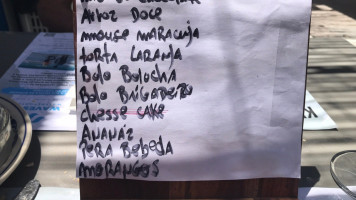 Arroz Doce
mmouse maracuja
torta laranja
Bolo Bolocha
Bolo Brigadeiro
chesse cake
Ananaz
Pera Bebeda
morangos